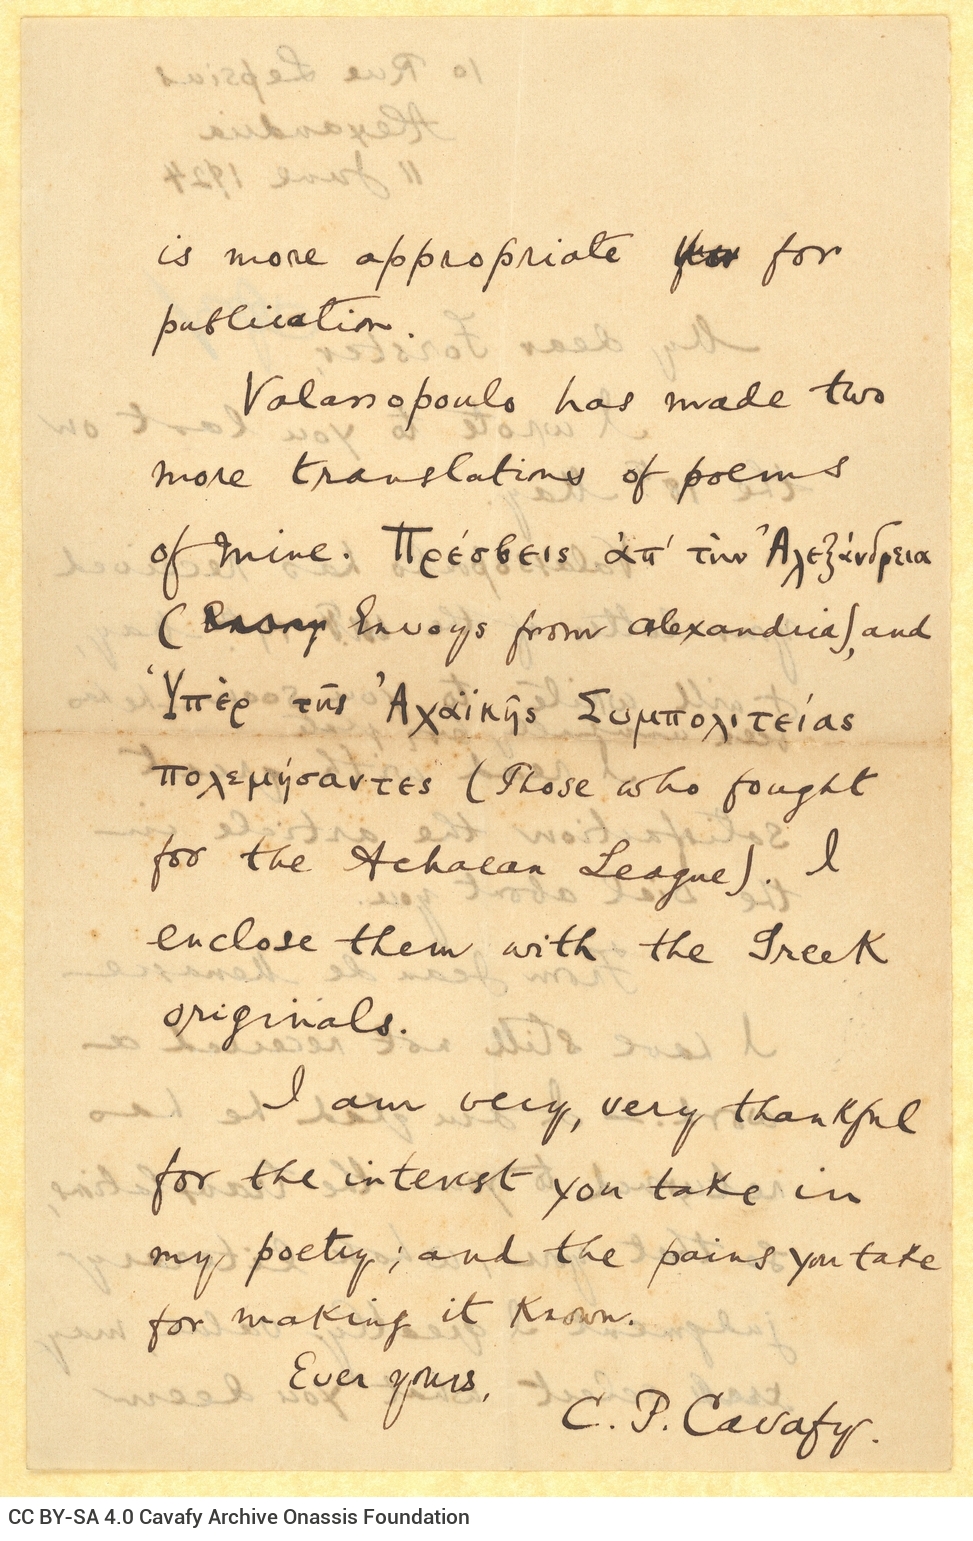 is more appropriate for
publication.
Valassopoulo has made two
more translations of poems
of mine. Πρέσβεις ἀπ' τὴν Ἀλεξάνδρεια
( Envoys from Alexandria), and
Ὑπὲρ τῆς Ἀχαϊκῆς Συμπολιτείας
πολεμήσαντες (Those who fought
for the Achaean League). I
enclose them with the Greek
originals.
I am very, very thankful
for the interest you take in
my poetry; and the pains you take
for making it known.
Ever yours,
C. P. Cavafy.
CC BY-SA 4.0 Cavafy Archive Onassis Foundation